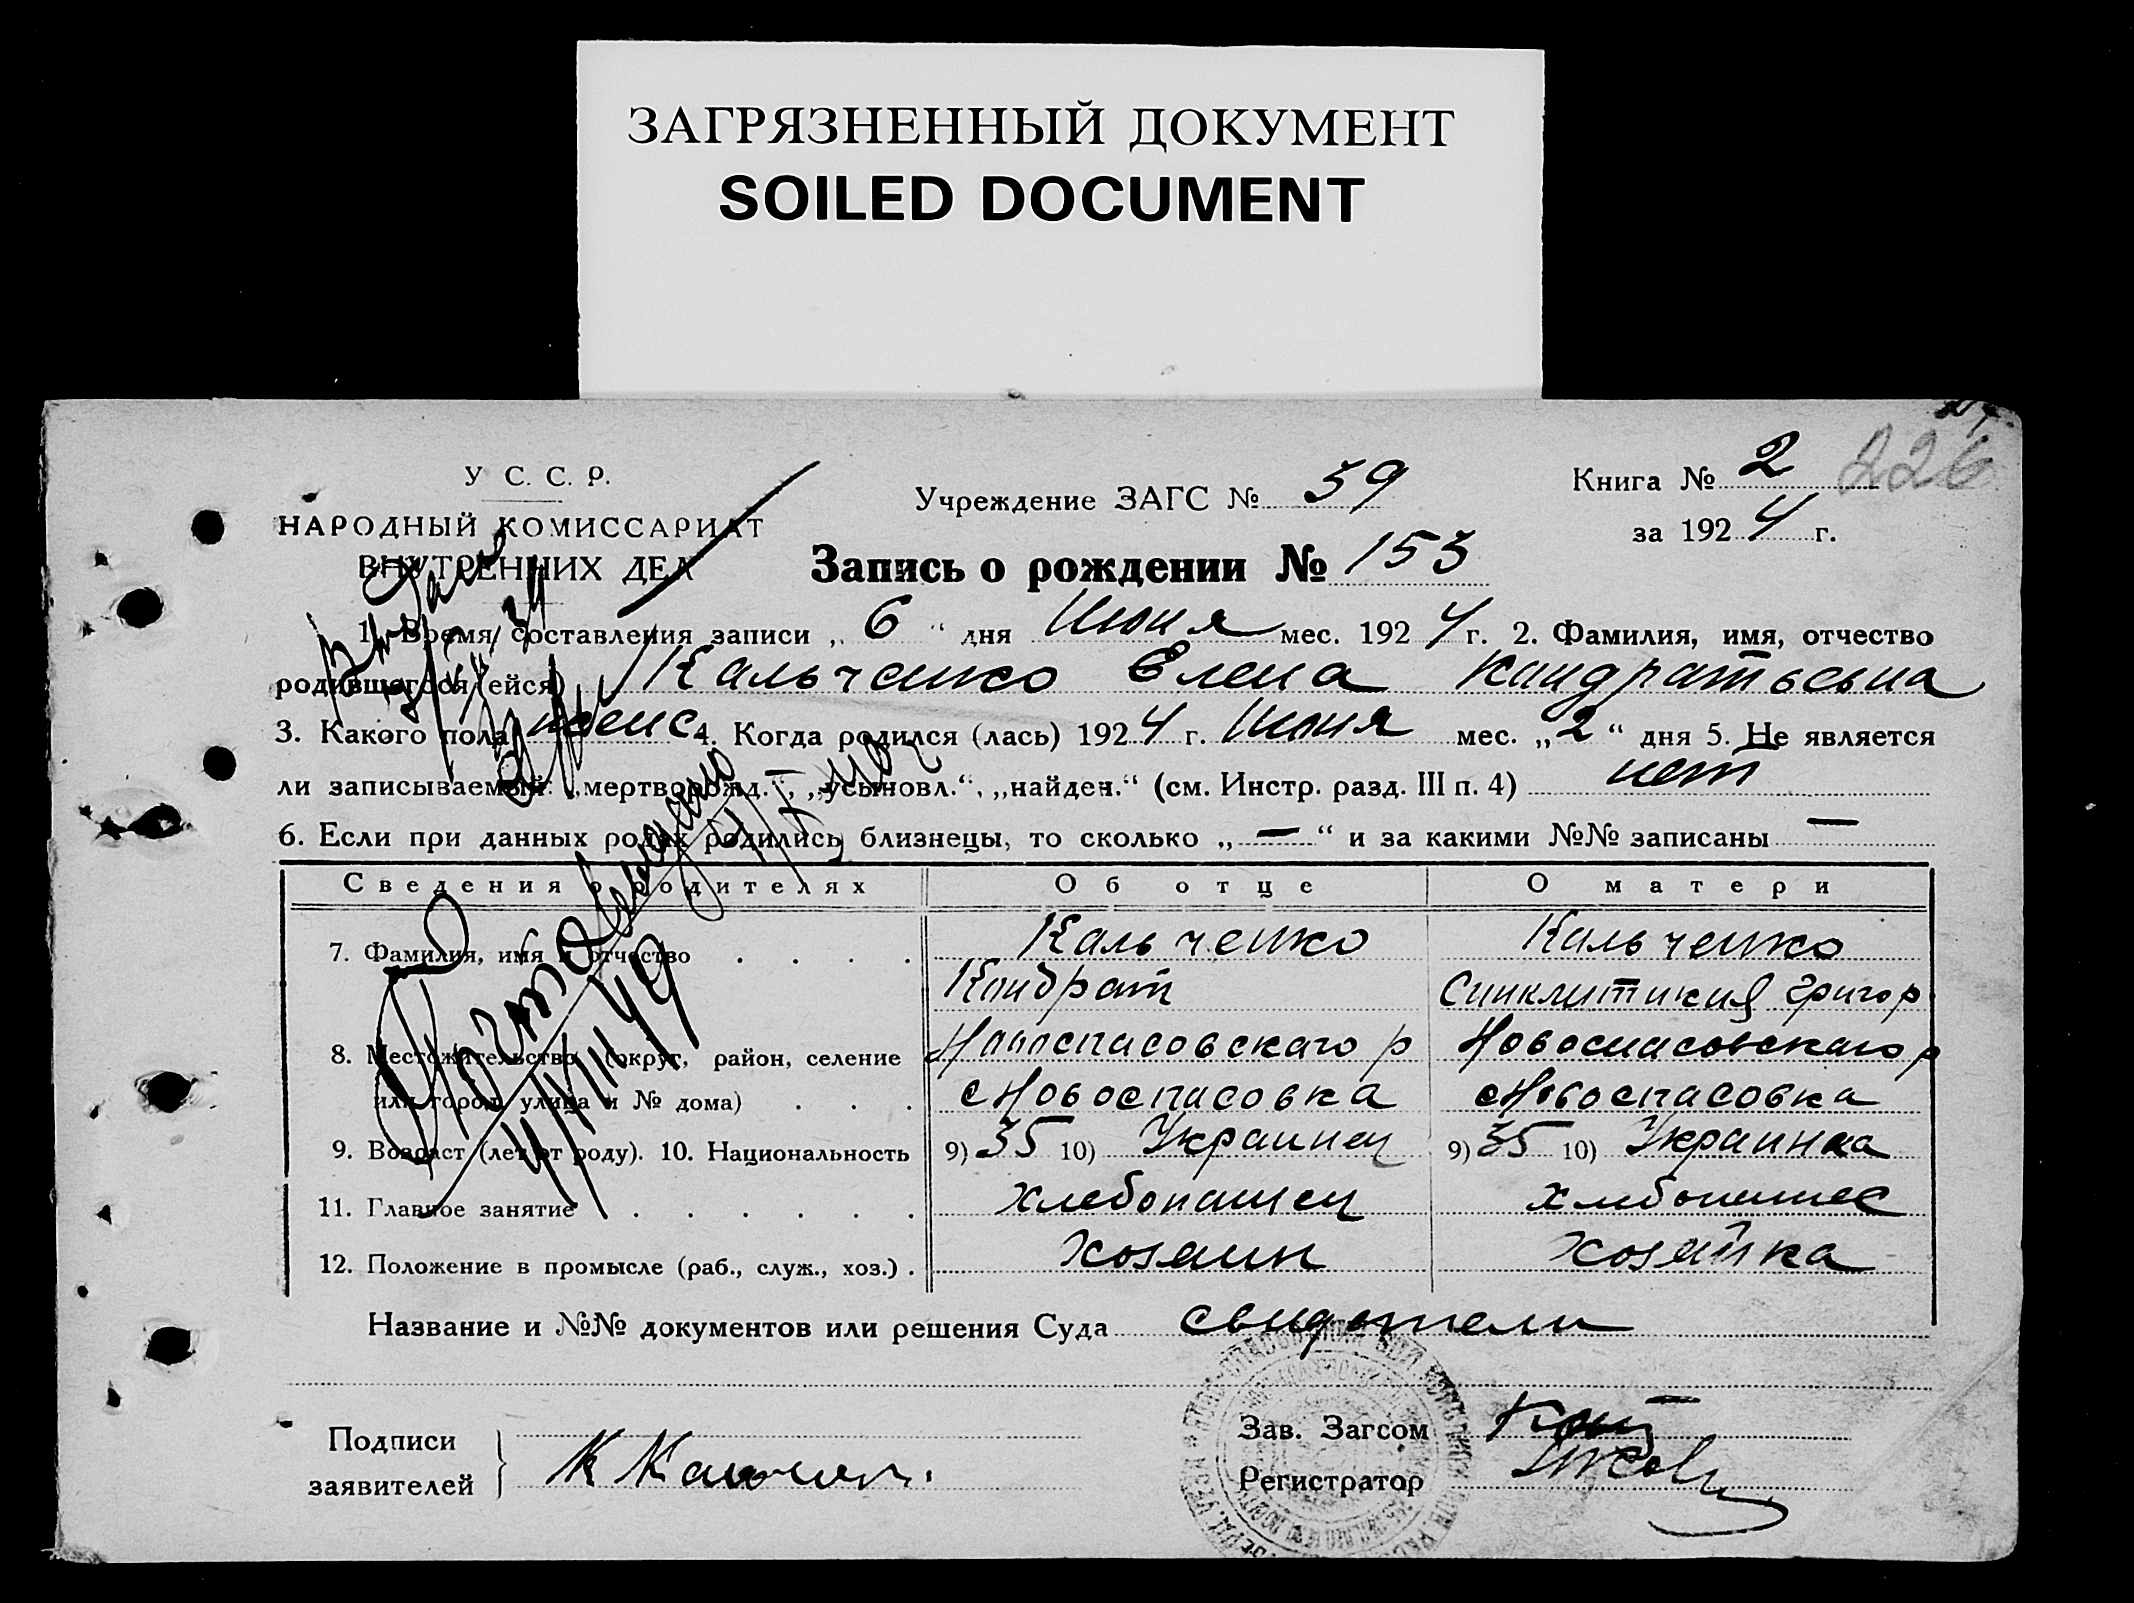 ЗАГРЯЗНЕННЫЙ ДОКУМЕНТ
SOILED DOCUMENT
226
У С. С. Р.
НАРОДНЫЙ КОМИССАРИАТ
ВНУТРЕННИХ ДЕЛ
Учреждение ЗАГС № 39
Книга № 2
за 1924 г.
Запись о рождении № 153
1. Время составления записи „ 6 “ дня Июня мес. 1924 г. 2. Фамилия, имя, отчество
родившегося (ейся) Кальченко Елена Кандратьевна
3. Какого пола женс 4. Когда родился (лась) 1924 г. Июня мес. „2“ дня 5. Не является
ли записываемый: „мертворожд.“, „усыновл.“, „найден.“ (см. Инстр. разд. III п. 4) нет
6. Если при данных родах родились близнецы, то сколько „—“ и за какими №№ записаны —
Сведения о родителях Об отце О матери
7. Фамилия, имя и отчество . . . . Кальченко Кальченко
Кондрат Синклитикия Григор
8. Местожительство (округ, район, селение Новоспасовскаго р Новоспасовскаго р
или город, улица и № дома) . . . с Новоспасовка с Новоспасовка
9. Возраст (лет от роду). 10. Национальность 9) 35 10) Украинец 9) 35 10) Украинка
11. Главное занятие . . . . . . хлебопашец хлебопашес
12. Положение в промысле (раб., служ., хоз.) . хозяин хозяйка
Название и №№ документов или решения Суда свидетели
Подписи
заявителей
Зав. Загсом
Регистратор